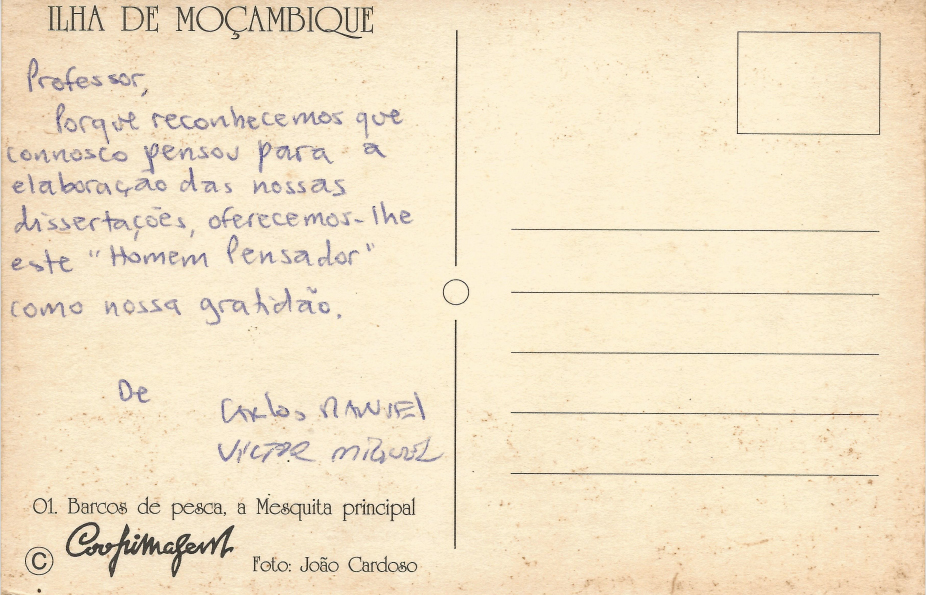 ILHA DE MOÇAMBIQUE
Professor,
Porque reconhecemos que
connosco pensou para a
elaboração das nossas
dissertações, oferecemos-lhe
este "Homem Pensador"
como nossa gratidão.
De
Carlos MANUEL
VICTOR MIGUEL
01. Barcos de pesca, a Mesquita principal
© Coopimagem
Foto: João Cardoso